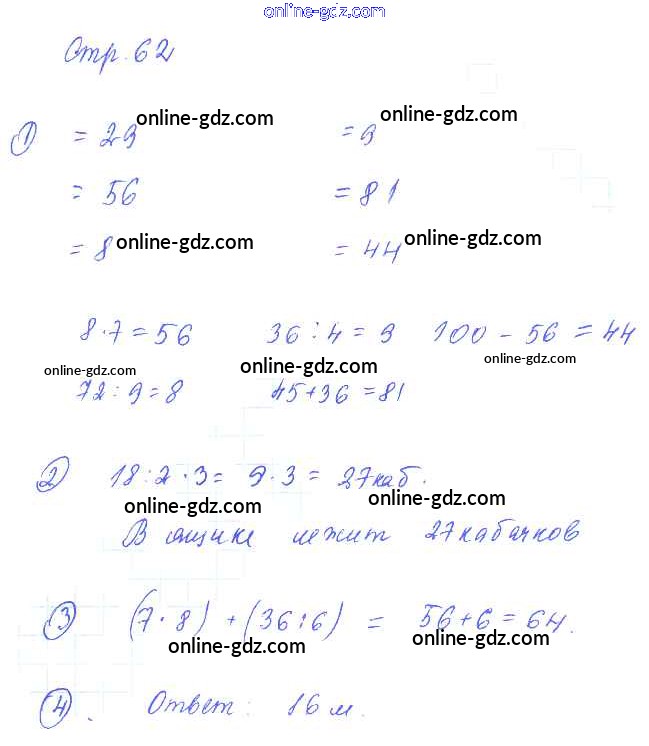 online-gdz.com
Стр. 62
① = 29 online-gdz.com = 9 online-gdz.com
= 56 = 81
= 8 online-gdz.com = 44 online-gdz.com
8·7=56 36:4=9 100-56=44
online-gdz.com online-gdz.com online-gdz.com
72:9=8 45+36=81
② 18:2·3= 9·3=27каб.
online-gdz.com online-gdz.com
В ящике лежит 27 кабачков
③ (7·8)+(36:6) = 56+6=64.
online-gdz.com online-gdz.com
④. Ответ: 16 м.